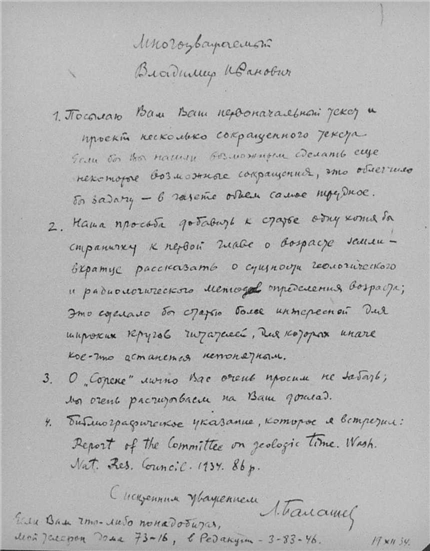 Многоуважаемый
Владимир Иванович
1. Посылаю Вам Ваш первоначальный текст и
проект несколько сокращенного текста
Если бы Вы нашли возможным сделать еще
некоторые возможные сокращения, это облегчило
бы задачу – в газете объем самое трудное.
2. Наша просьба добавить к статье одну хотя бы
страничку к первой главе о возрасте земли –
вкратце рассказать о сущности геологического
и радиологического методов определения возраста;
это сделало бы статью более интересной для
широких кругов читателей, для которых иначе
кое-что останется непонятным.
3. О „Сорене" лично Вас очень просим не забыть;
мы очень рассчитываем на Ваш доклад.
4. Библиографическое указание, которое я встретил:
Report of the Committee on geologic time. Wash.
Nat. Res. Council – 1934. 86 p.
С искренним уважением
Л. Балашев
Если Вам что-либо понадобится,
мой телефон дома 73-16, в Редакции – 3-83-46.
19 XII 34.